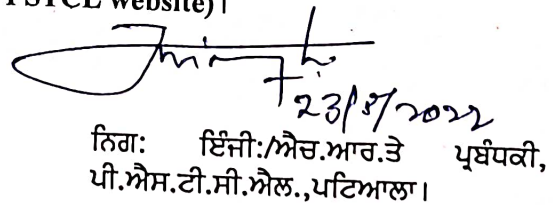 PSTCL website)।
23/8/2022
ਨਿਗ: ਇੰਜੀ:/ਐਚ.ਆਰ.ਤੇ ਪ੍ਰਬੰਧਕੀ,
ਪੀ.ਐਸ.ਟੀ.ਸੀ.ਐਲ.,ਪਟਿਆਲਾ।